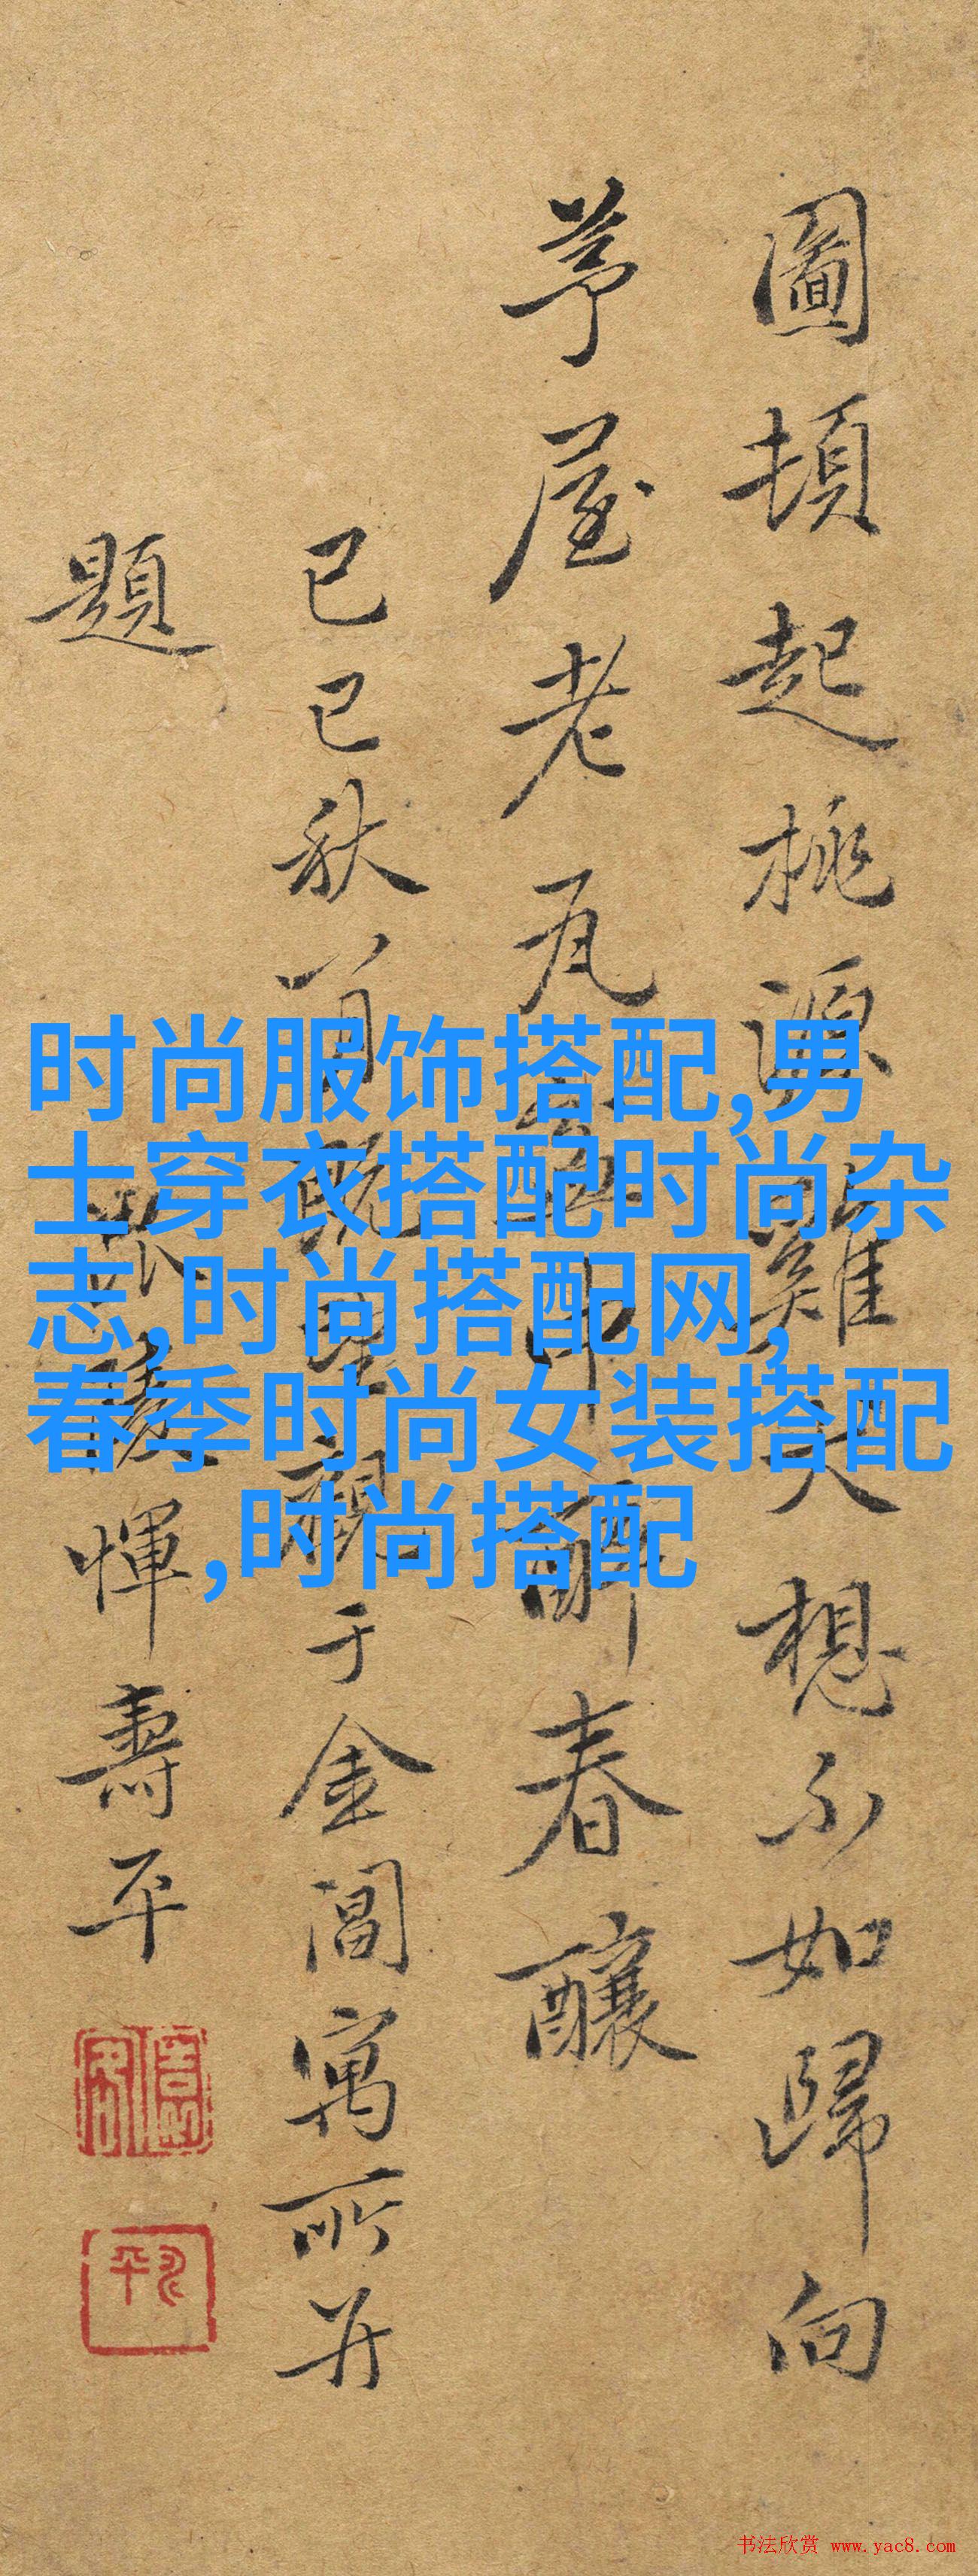 圖頓起桃源雞犬想不如歸向
茅屋老瓦中春釀
己巳秋八月既望觀于金閶寓所并
題惲壽平
时尚服饰搭配,男
士穿衣搭配时尚杂
志,时尚搭配网,
春季时尚女装搭配
,时尚搭配
书法欣赏 www.yac8.com